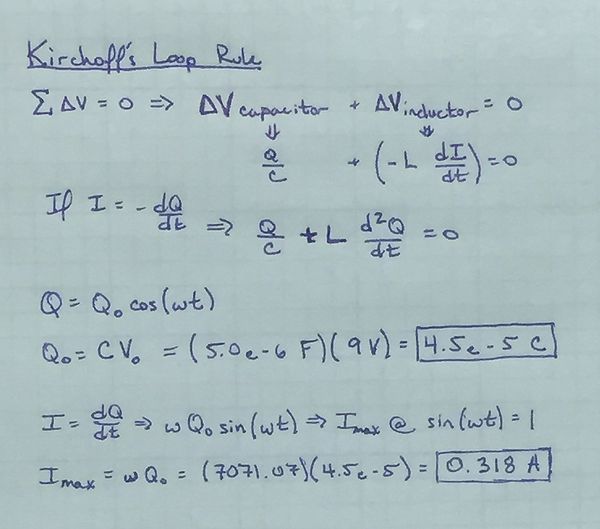 Kirchoff's Loop Rule
∑ΔV = 0 ⇒ ΔV capacitor + ΔV inductor = 0
⇓ ⇓
Q/C + (-L dI/dt) = 0
If I = -dQ/dt ⇒ Q/C + L d²Q/dt = 0
Q = Q₀ cos(ωt)
Q₀ = CV₀ = (5.0e-6 F)(9V) = 4.5e-5 C
I = dQ/dt ⇒ ωQ₀ sin(ωt) ⇒ I max @ sin(ωt) = 1
I max = ωQ₀ = (7071.07)(4.5e-5) = 0.318 A